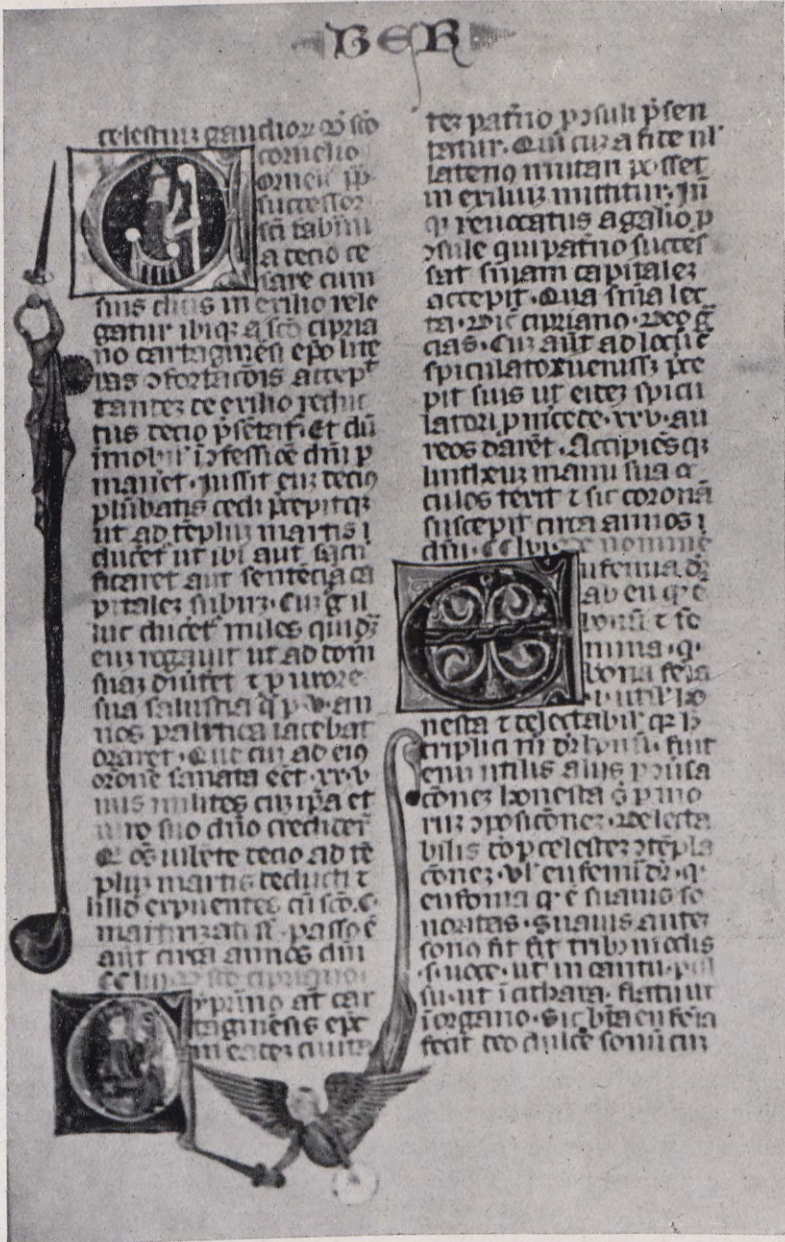 BER
celestiuz gaudioꝝ
cornelio
ornelius pp
successor
sci fabini
a decio ce
sare cum
suis clĩs in exilio rele
gatur ibiqꝫ a sc̃o cipria
no cartaginẽsi ep̃o litte
ras ɔfortac̃ois accep̃t
tandeꝫ de exilio reduc
tus decio p̃sẽtat᷑. Et cũ
imobil᷑ ĩ ɔfessiõe dñi p
maner̃et. iussit euꝫ decius
plũbatis cedi precepitqꝫ
ut ad tẽpluꝫ martis
ducer̃et ut ibi aut sacri
ficaret aut sentẽcia ca
pitaleꝫ subirꝫ. Cuꝫ g̃ il
luc ducer̃et miles quidaꝫ
euꝫ rogauit ut ad dom
suaꝫ diũtet ⁊ p uxore
sua salustia q̃ p .v. an
nos palitica iacebat
oraret. Que cũ ad eius
orõne sanata eẽt .xx.
milites cuꝫ ip̃a et
uiro suo dño crediderũt
decio ad tẽ
pluꝫ martis deducti ⁊
illud expuentes cũ sc̃o. c.
martirizati sũt. passus ẽ
aut circa annos dñi
cc liii. de sc̃o cipriano
yprino aũt car
taginẽsis ep̃c
in eadeꝫ ciuita
teꝫ patr̃no p̃suli p̃sen
tatur. Qui cũ a fide nul
latenꝰ mutari posset
in exiliuꝫ mittitur. In
reuocatus a galio p
ɔsule qui patr̃no succes
sat sñiam capitaleꝫ
accepit. Qua sñia lec
ta. dix̃ ciprianꝰ. deo g̃
cias. Cuꝫ aũt ad locuꝫ
spiculator uenissꝫ pre
pit suis ut eideꝫ spicu
latori p mercede .xxv. au
reos darẽt. Accipiẽsqꝫ
lintheuꝫ manu sua o
culos texit ⁊ sic coronã
suscepit circa annos
dñi. cc lvi. de nomine
ufemia d᷑r
ab eu qꝫ ẽ
bonũ ⁊ fe
mina. q.
bona femĩa
ł utił ho
nesta ⁊ delectabił. qꝫ h̃
triplici mõ d᷑r bonũ. fuit
eni utilis aliis p ɔuersa
cõneꝫ honesta p mo
ruꝫ ɔposicõneꝫ. delecta
bilis deo p celesteꝫ ɔtẽpla
cõneꝫ. vł eufemĩ d᷑r. q.
eufonia qꝫ ẽ suauis so
noritas. Suauis auteꝫ
sono fit tribꝰ modis
.s. uoce. ut in cantu.
ut ĩ cithara. flatu ut
ĩ organo. Sic bt̃a eufeĩa
fecit deo dulcẽ sonũ cuꝫ